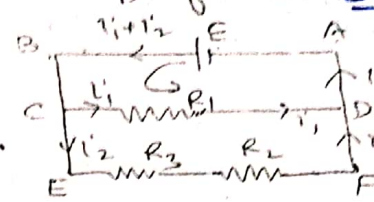 i₁+i₂ E
B A
C i₁ R₁ i₁ D
i₂ R₃ R₂
E F